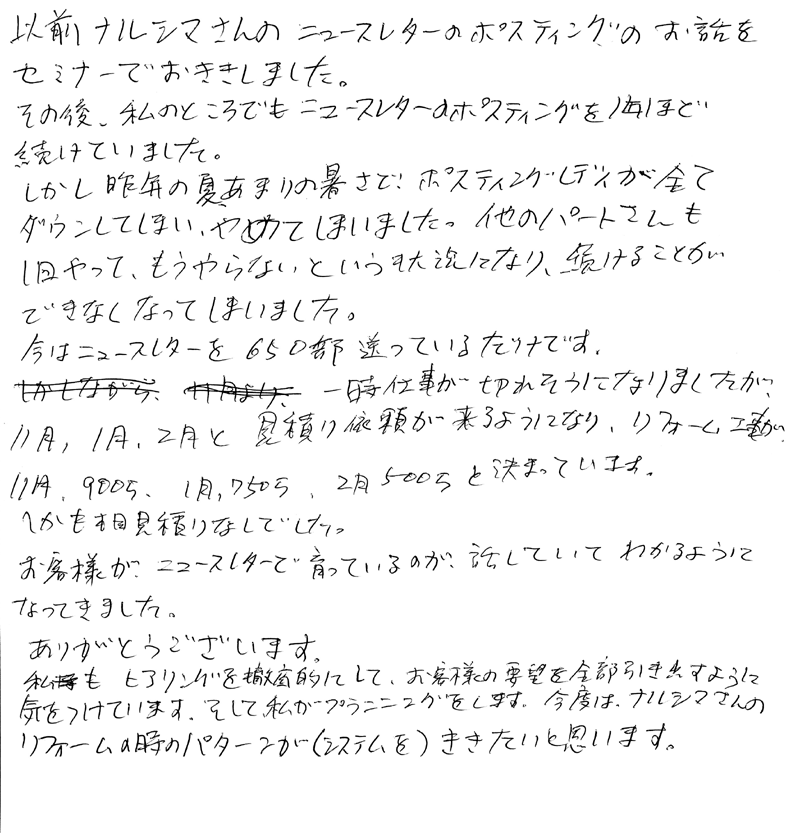 以前ナルシマさんのニュースレターのポスティングのお話を
セミナーでおききしました。
その後、私のところでもニュースレターのポスティングを1年ほど
続けていました。
しかし昨年の夏あまりの暑さで、ポスティングレディが全て
ダウンしてしまい、やめてしまいました。他のパートさんも
1回やって、もうやらないという状況になり、続けることが
できなくなってしまいました。
今はニュースレターを650部送っているだけです。
しかしながら、11月より、一時仕事が切れそうになりましたが、
11月、1月、2月と見積り依頼が来るようになり、リフォーム工事が、
11月、900万、1月,750万、2月500万と決まっています。
しかも相見積りなしでした。
お客様が、ニュースレターで育っているのが、話していてわかるように
なってきました。
ありがとうございます。
私もヒアリングを徹底的にして、お客様の要望を全部引き出すように
気をつけています。そして私がプランニングをします。今度は、ナルシマさんの
リフォームの時のパターンが(システムを)ききたいと思います。